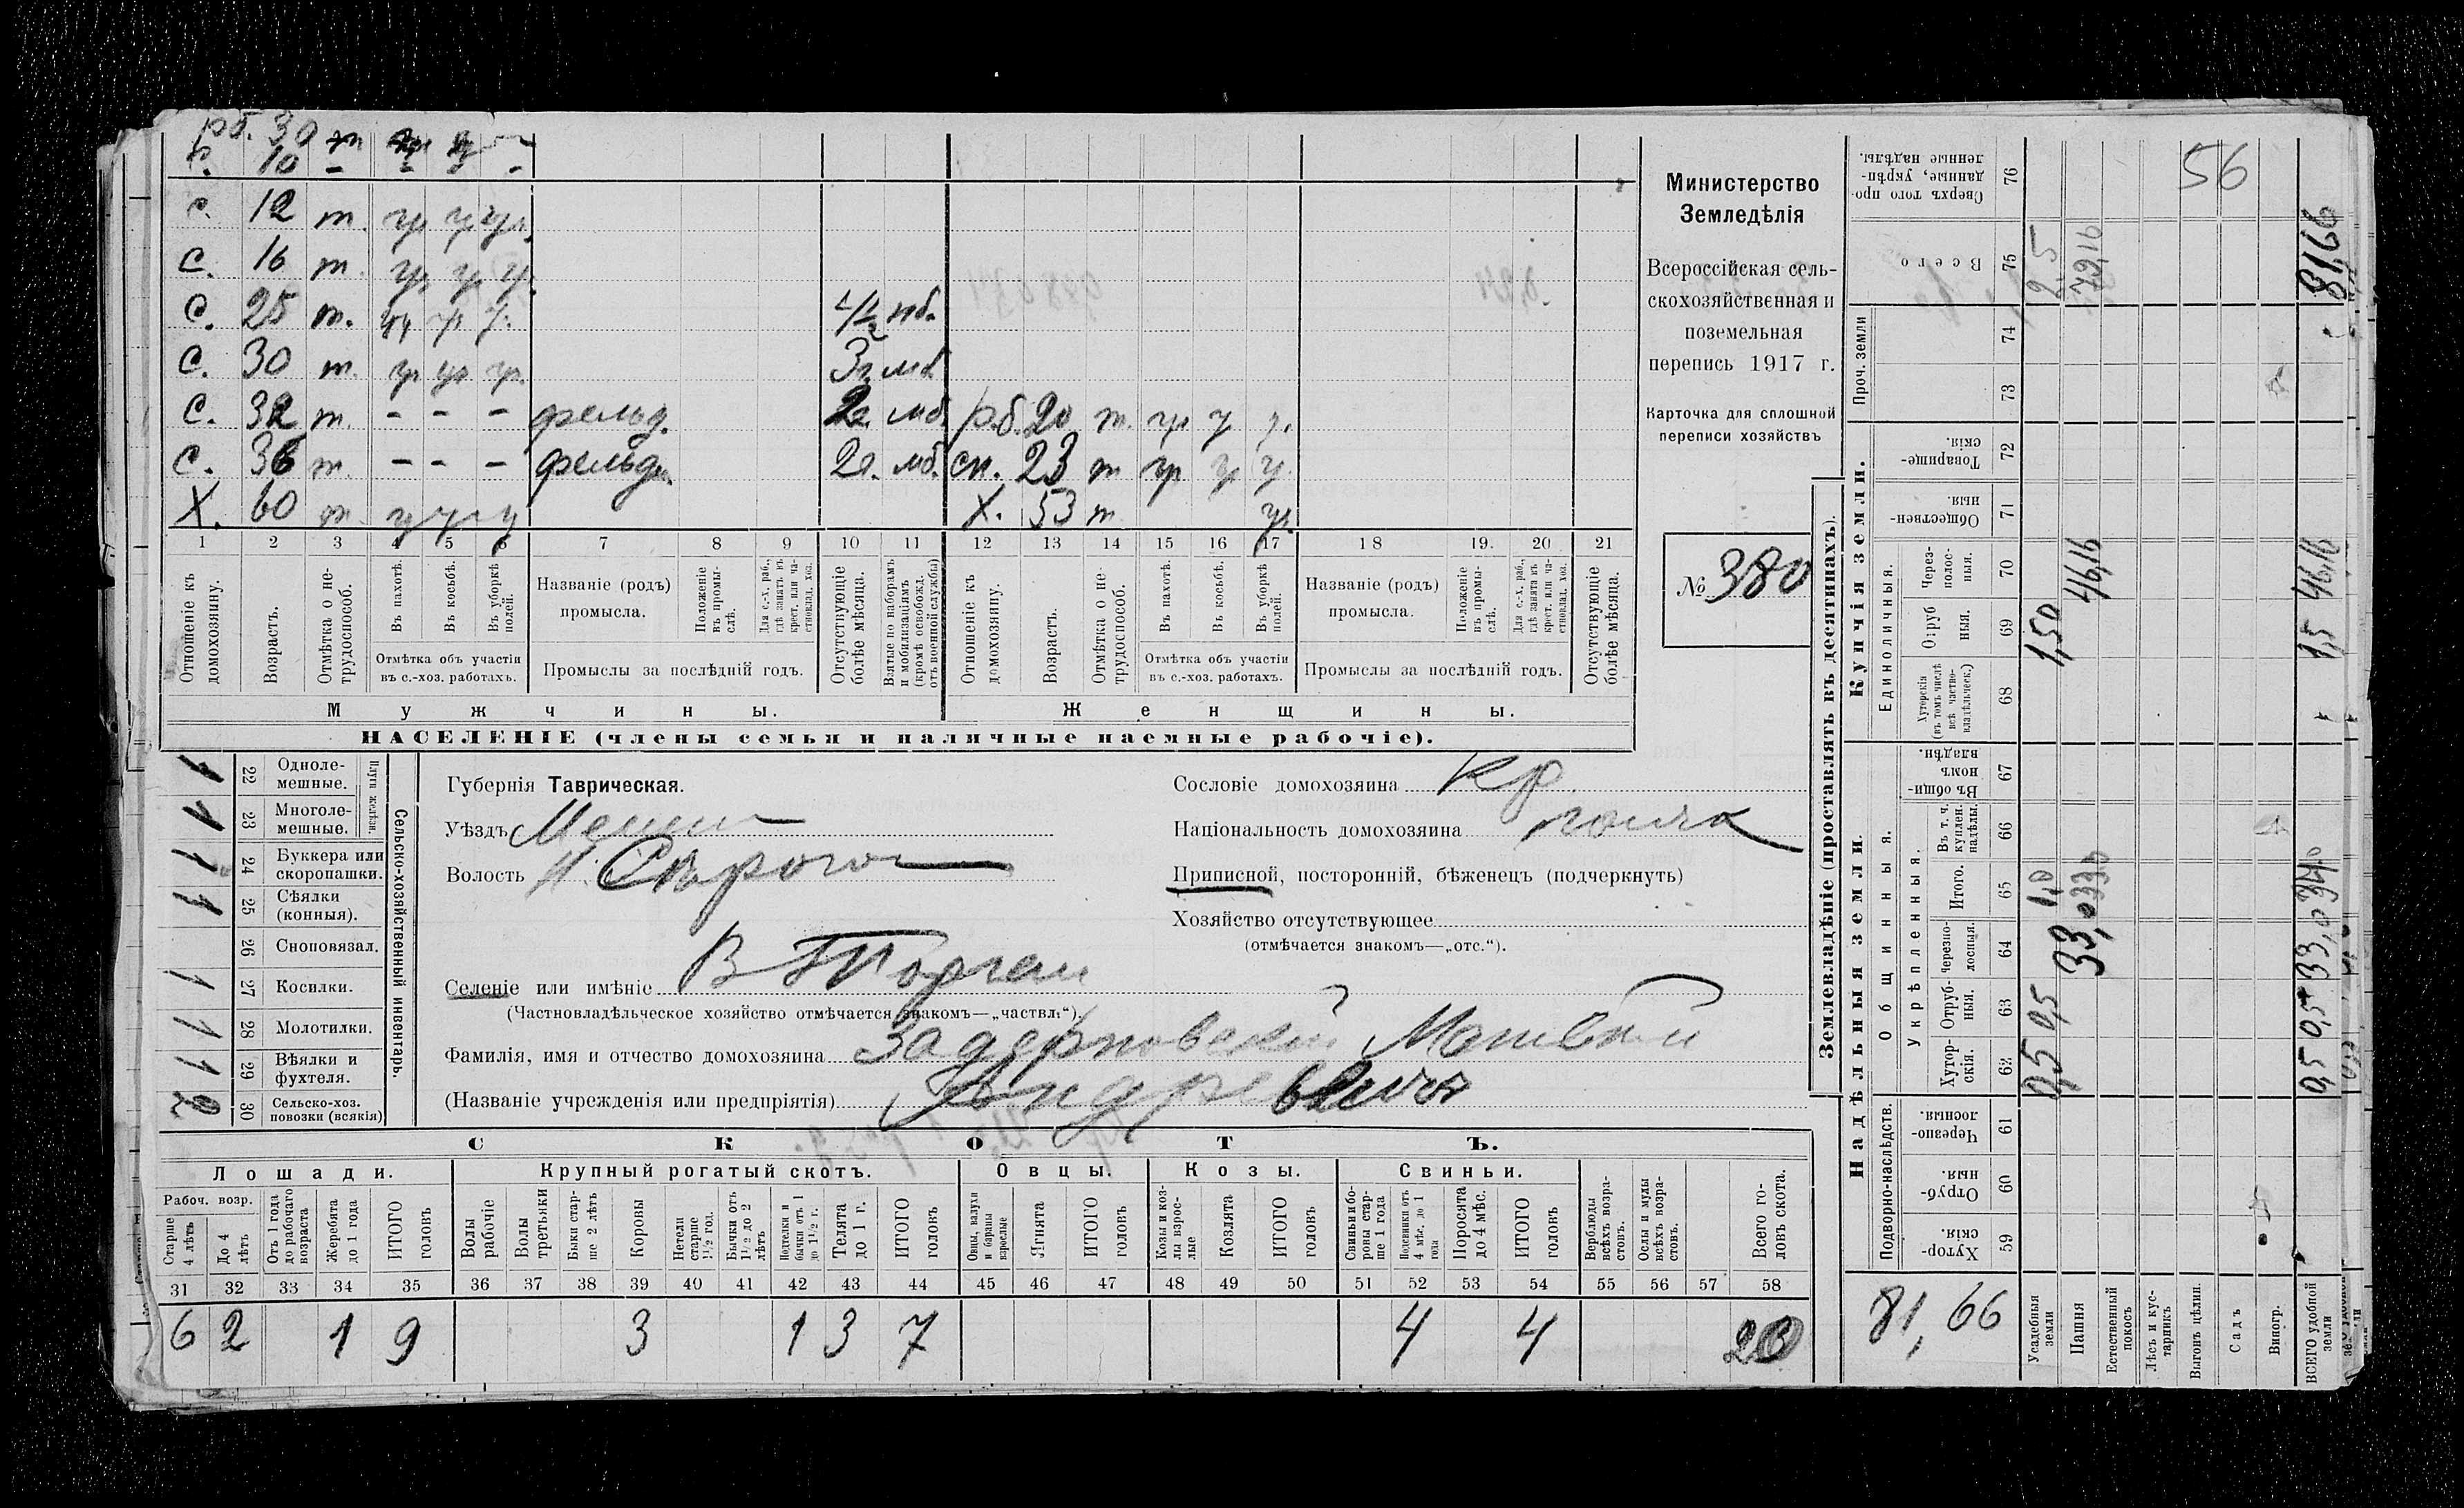 рб. 30 т
с. 10 - - - -
с. 12 т. ур ур ур.
с. 16 т. ур ур ур.
с. 25 т. ур ур у. мб.
с. 30 т. ур ур ур. 3г. мб
с. 32 т. - - - фельд. 2г. мб. рб. 20 т. ур у у.
с. 36 т. - - - фельд. 2г. мб. сн. 23 т ур ур у.
Х. 60 т. у ур у Х. 53 т ур.
1 2 3 4 5 6 7 8 9 10 11 12 13 14 15 16 17 18 19. 20 21
Отношеніе къ домохозяину.
Возрастъ.
Отмѣтка о нетрудоспособ.
Въ пахотѣ.
Въ косьбѣ.
Въ уборкѣ полей.
Отмѣтка объ участіи
въ с.-хоз. работахъ.
Названіе (родъ)
промысла.
Положеніе въ промыслѣ.
Для с.-х. раб., гдѣ занятъ въ крест. или частновлад. хоз.
Промыслы за послѣдній годъ.
Отсутствующіе болѣе мѣсяца.
Взятые по наборамъ и мобилизаціямъ (кромѣ освобожд. отъ военной службы)
Отношеніе къ домохозяину.
Возрастъ.
Отмѣтка о нетрудоспособ.
Въ пахотѣ.
Въ косьбѣ.
Въ уборкѣ полей.
Отмѣтка объ участіи
въ с.-хоз. работахъ.
Названіе (родъ)
промысла.
Положеніе въ промыслѣ.
Для с.-х. раб., гдѣ занятъ въ крест. или частновлад. хоз.
Промыслы за послѣдній годъ.
Отсутствующіе болѣе мѣсяца.
Мужчины. Женщины.
НАСЕЛЕНІЕ (члены семьи и наличные наемные рабочіе).
Министерство
Земледѣлія
Всероссійская сель-
скохозяйственная и
поземельная
перепись 1917 г.
Карточка для сплошной
переписи хозяйствъ
№ 380
Сельско-хозяйственный инвентарь.
Плуги желѣзн.
1 22 Однолемешные.
1 23 Многолемешные.
1 24 Буккера или скоропашки.
1 25 Сѣялки (конныя).
26 Сноповязал.
1 27 Косилки.
1 28 Молотилки.
1 29 Вѣялки и фухтеля.
2 30 Сельско-хоз. повозки (всякія)
Губернія Таврическая.
Уѣздъ Мелит
Волость Н. Сѣрого
Селеніе или имѣніе В Торгаи
(Частновладѣльческое хозяйство отмѣчается знакомъ—„частвл.“)
Фамилія, имя и отчество домохозяина Задерновскій Матвѣй
(Названіе учрежденія или предпріятія) Андреевичъ
Сословіе домохозяина Кр
Національность домохозяина
Приписной, посторонній, бѣженецъ (подчеркнуть)
Хозяйство отсутствующее
(отмѣчается знакомъ—„отс.“).
СКОТЪ.
Лошади. Крупный рогатый скотъ. Овцы. Козы. Свиньи.
Рабоч. возр.
Старше 4 лѣтъ
До 4 лѣтъ
Отъ 1 года до рабочаго возраста
Жеребята до 1 года
ИТОГО головъ
Волы рабочіе
Волы третьяки
Быки старше 2 лѣтъ
Коровы
Нетели старше 1½ год.
Бычки отъ 1½ до 2 лѣтъ
Подтелки и бычки отъ 1 до 1½ г.
Телята до 1 г.
ИТОГО головъ
Овцы, валухи и бараны взрослые
Ягнята
ИТОГО головъ
Козы и козлы взрослые
Козлята
ИТОГО головъ
Свиньи и боровы старше 1 года
Подсвинки отъ 4 мѣс. до 1 года
Поросята до 4 мѣс.
ИТОГО головъ
Верблюды всѣхъ возрастовъ.
Ослы и мулы всѣхъ возрастовъ.
Всего головъ скота.
31 32 33 34 35 36 37 38 39 40 41 42 43 44 45 46 47 48 49 50 51 52 53 54 55 56 57 58
6 2 1 9 3 1 3 7 4 4 20
Землевладѣніе (проставлять въ десятинахъ).
Купчія земли.
Надѣльныя земли.
56
Сверхъ того проданные, укрѣпленные надѣлы. 76
Всего 75 2,5 79,16 81,66
Проч. земли 74
73
Товарищескія. 72
Общественныя. 71
Единоличныя.
Черезполосныя. 70 46,16 46,16
Отрубныя. 69 1,50 1,5
Хуторскія (въ томъ числѣ всѣ частновладѣльческ.) 68
Общинныя.
Въ общинномъ владѣн. 67
Укрѣпленныя.
Въ т. ч. куплен. надѣлы. 66
Итого. 65 1,0 33,0
Черезполосныя. 64 33,0 33,0
Отрубныя. 63 0,5 0,5
Хуторскія. 62 0,5 0,5
Подворно-наслѣдств.
Черезполосныя. 61
Отрубныя. 60
Хуторскія. 59
81,66
Усадебныя земли
Пашня
Естественный покосъ
Лѣсъ и кустарникъ
Выгонъ цѣлин.
Садъ
Виногр.
ВСЕГО удобной земли